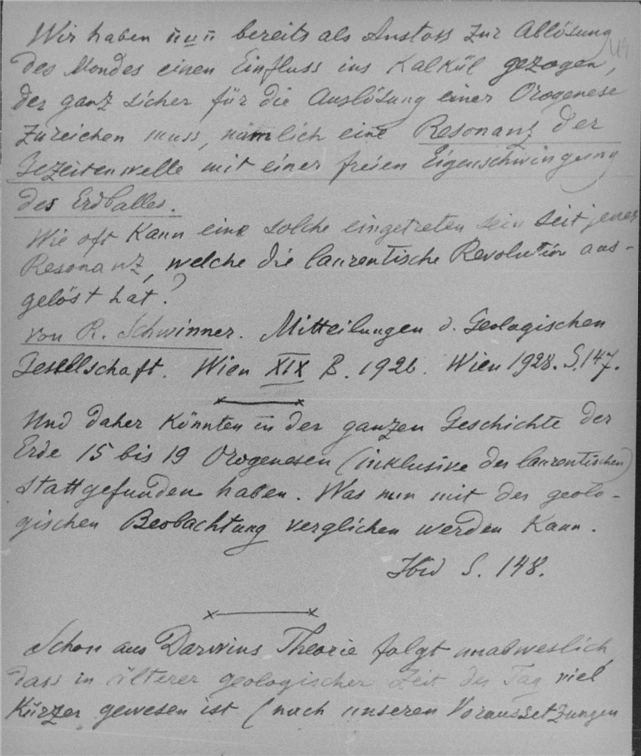 Wir haben nun bereits als Anstoss zur Ablösung
des Mondes einen Einfluss ins Kalkül gezogen,
der ganz sicher für die Auslösung einer Orogenese
zureichen muss, nämlich eine Resonanz der
Gezeitenwelle mit einer freien Eigenschwingung
des Erdballes.
Wie oft kann eine solche eingetreten sein seit jener
Resonanz, welche die laurentische Revolution aus-
gelöst hat?
von R. Schwinner. Mitteilungen d. Geologischen
Gesellschaft. Wien XIX B. 1926. Wien 1928. S. 147.
Und daher könnten in der ganzen Geschichte der
Erde 15 bis 19 Orogenesen (inklusive der laurentischen)
stattgefunden haben. Was nun mit der geolo-
gischen Beobachtung verglichen werden kann.
Ibid S. 148.
Schon aus Darwins Theorie folgt unabweslich
dass in älterer geologischer Zeit der Tag viel
kürzer gewesen ist (nach unseren Voraussetzungen